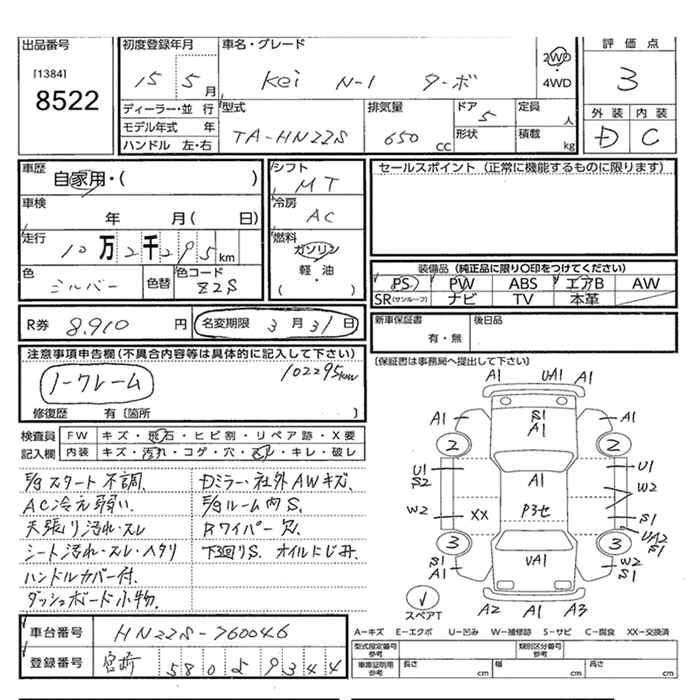 出品番号 初度登録年月 車名・グレード 評価点
[1384]
8522
15 5月
Kei N-1 ターボ
2WD
・
4WD
3
ディーラー・並行 型式 排気量 ドア 5 定員 人
外装 内装
モデル年式 年
TA-HN22S 650 CC 形状 積載 kg
D C
ハンドル 左・右
車歴 シフト セールスポイント(正常に機能するものに限ります)
自家用・( )
MT
車検 冷房
年 月( 日)
AC
走行 燃料
10万2千295km
ガソリン
装備品(純正品に限り○印をつけてください)
色 色替 色コード 軽・油
シルバー Z2S
( )
PS PW ABS エアB AW
SR(サンルーフ) ナビ TV 本革
R券 8,910 円 名変期限 3月31日
新車保証書 後日品
有・無
注意事項申告欄(不具合内容等は具体的に記入して下さい)
(保証書は事務局へ提出して下さい)
102295km
ノークレーム
修復歴 有〔箇所 〕
検査員 FW キズ・飛石・ヒビ割・リペア跡・X要
記入欄 内装 キズ・汚れ・コゲ・穴・スレ・キレ・破レ
スタート不調.
Dミラー・社外AWキズ.
AC冷え弱い.
ルーム内S.
天張り汚れ・スレ
Rワイパー欠.
シート汚れ・スレ・ヘタリ
下回りS. オイルにじみ.
ハンドルカバー付.
ダッシュボード小物.
A1 UA1 A1
A1 S1 A1
A1
2 2
U1 A1 U1
S2 W2
W2 XX P3セ S1
UA2
3 3 S1
S1 UA1 W2
A1 S1
スペアT A2 A1 A3
A-キズ E-エクボ U-凹み W-補修跡 S-サビ C-腐食 XX-交換済
車台番号 HN22S-760046
型式指定番号 参考 類別区分番号 参考
登録番号 宮崎 580 5 9344
車庫証明用 参考 長さ cm 幅 cm 高さ cm